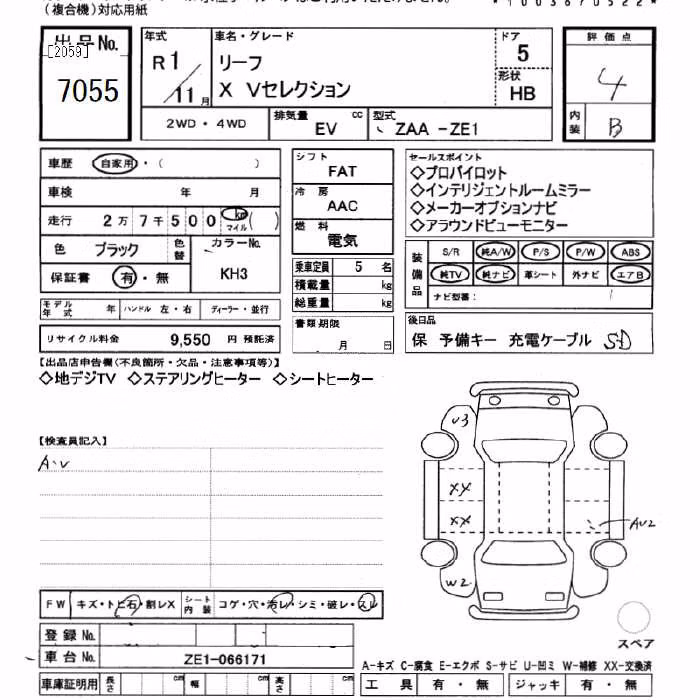 (複合機)対応用紙
*1003670522*
出品No.
[2059]
7055
年式
R1
11月
車名・グレード
リーフ
X Vセレクション
ドア
5
形状
HB
評価点
4
内装
B
2WD・4WD
排気量
EV
cc
型式
ZAA -ZE1
車歴
自家用・( )
車検
年 月
走行
2万7千500
km
マイル
( )
色
ブラック
色替
カラーNo.
KH3
保証書
有・無
モデル年式
年
ハンドル 左・右
ディーラー・並行
リサイクル料金
9,550 円 預託済
シフト
FAT
冷房
AAC
燃料
電気
乗車定員 5 名
積載量 kg
総重量 kg
書類期限
月 日
セールスポイント
◇プロパイロット
◇インテリジェントルームミラー
◇メーカーオプションナビ
◇アラウンドビューモニター
装備品
S/R 純A/W P/S P/W ABS
純TV 純ナビ 革シート 外ナビ エアB
ナビ型番:
後日品
保 予備キー 充電ケーブル SD
【出品店申告欄(不良箇所・欠品・注意事項等)】
◇地デジTV ◇ステアリングヒーター ◇シートヒーター
【検査員記入】
A・U
U3
XX
XX
AU2
W2
FW
キズ・トビ石・割レX
シート内装
コゲ・穴・汚レ・シミ・破レ・スレ
登録No.
車台No.
ZE1-066171
車庫証明用
長さ cm
幅 cm
高さ cm
スペア
A-キズ C-腐食 E-エクボ S-サビ U-凹ミ W-補修 XX-交換済
工具 有・無
ジャッキ 有・無